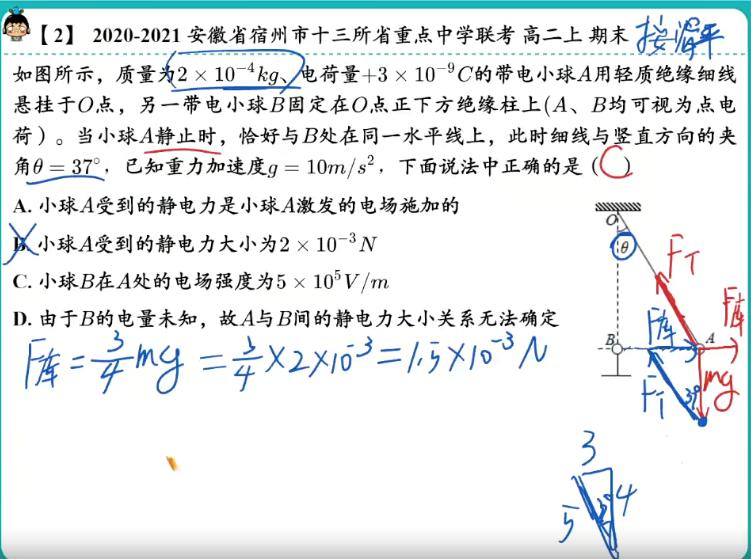 【2】 2020-2021 安徽省宿州市十三所省重点中学联考 高二上 期末
如图所示，质量为2 × 10⁻⁴kg、电荷量+3 × 10⁻⁹C的带电小球A用轻质绝缘细线
悬挂于O点，另一带电小球B固定在O点正下方绝缘柱上(A、B均可视为点电
荷）。当小球A静止时，恰好与B处在同一水平线上，此时细线与竖直方向的夹
角θ = 37°，已知重力加速度g = 10m/s²，下面说法中正确的是（C）
A. 小球A受到的静电力是小球A激发的电场施加的
B. 小球A受到的静电力大小为2 × 10⁻³N
C. 小球B在A处的电场强度为5 × 10⁵V/m
D. 由于B的电量未知，故A与B间的静电力大小关系无法确定
F库 = 3/4 mg = 3/4 × 2×10⁻³ = 1.5×10⁻³ N
O
θ
F_T
F库
F库
B
A
F_T
37°
mg
3
5
4